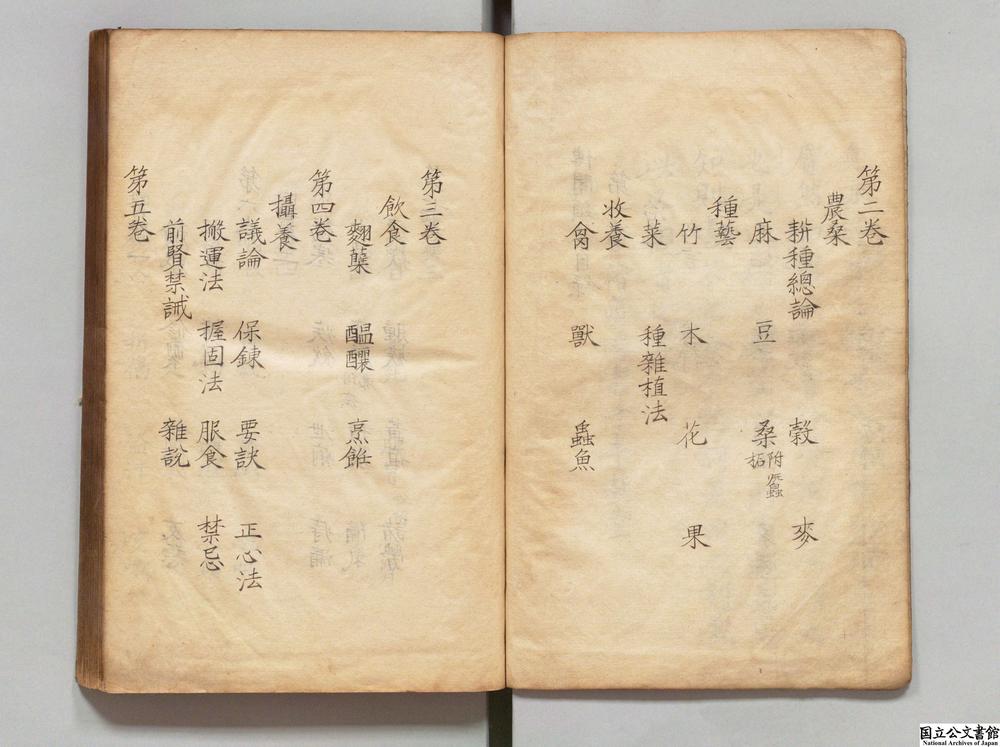 第二卷
農桑
耕種總論 穀 麥
麻 豆 桑 附蠶柘
種藝
竹 木 花 果
菜 種雜植法
收養
禽 獸 蟲魚
第三卷
飲食
麴蘖 醖釀 烹飪
第四卷
攝養
議論 保錬 要訣 正心法
搬運法 握固法 服食 禁忌
前賢禁誡 雜說
第五卷
国立公文書館
National Archives of Japan